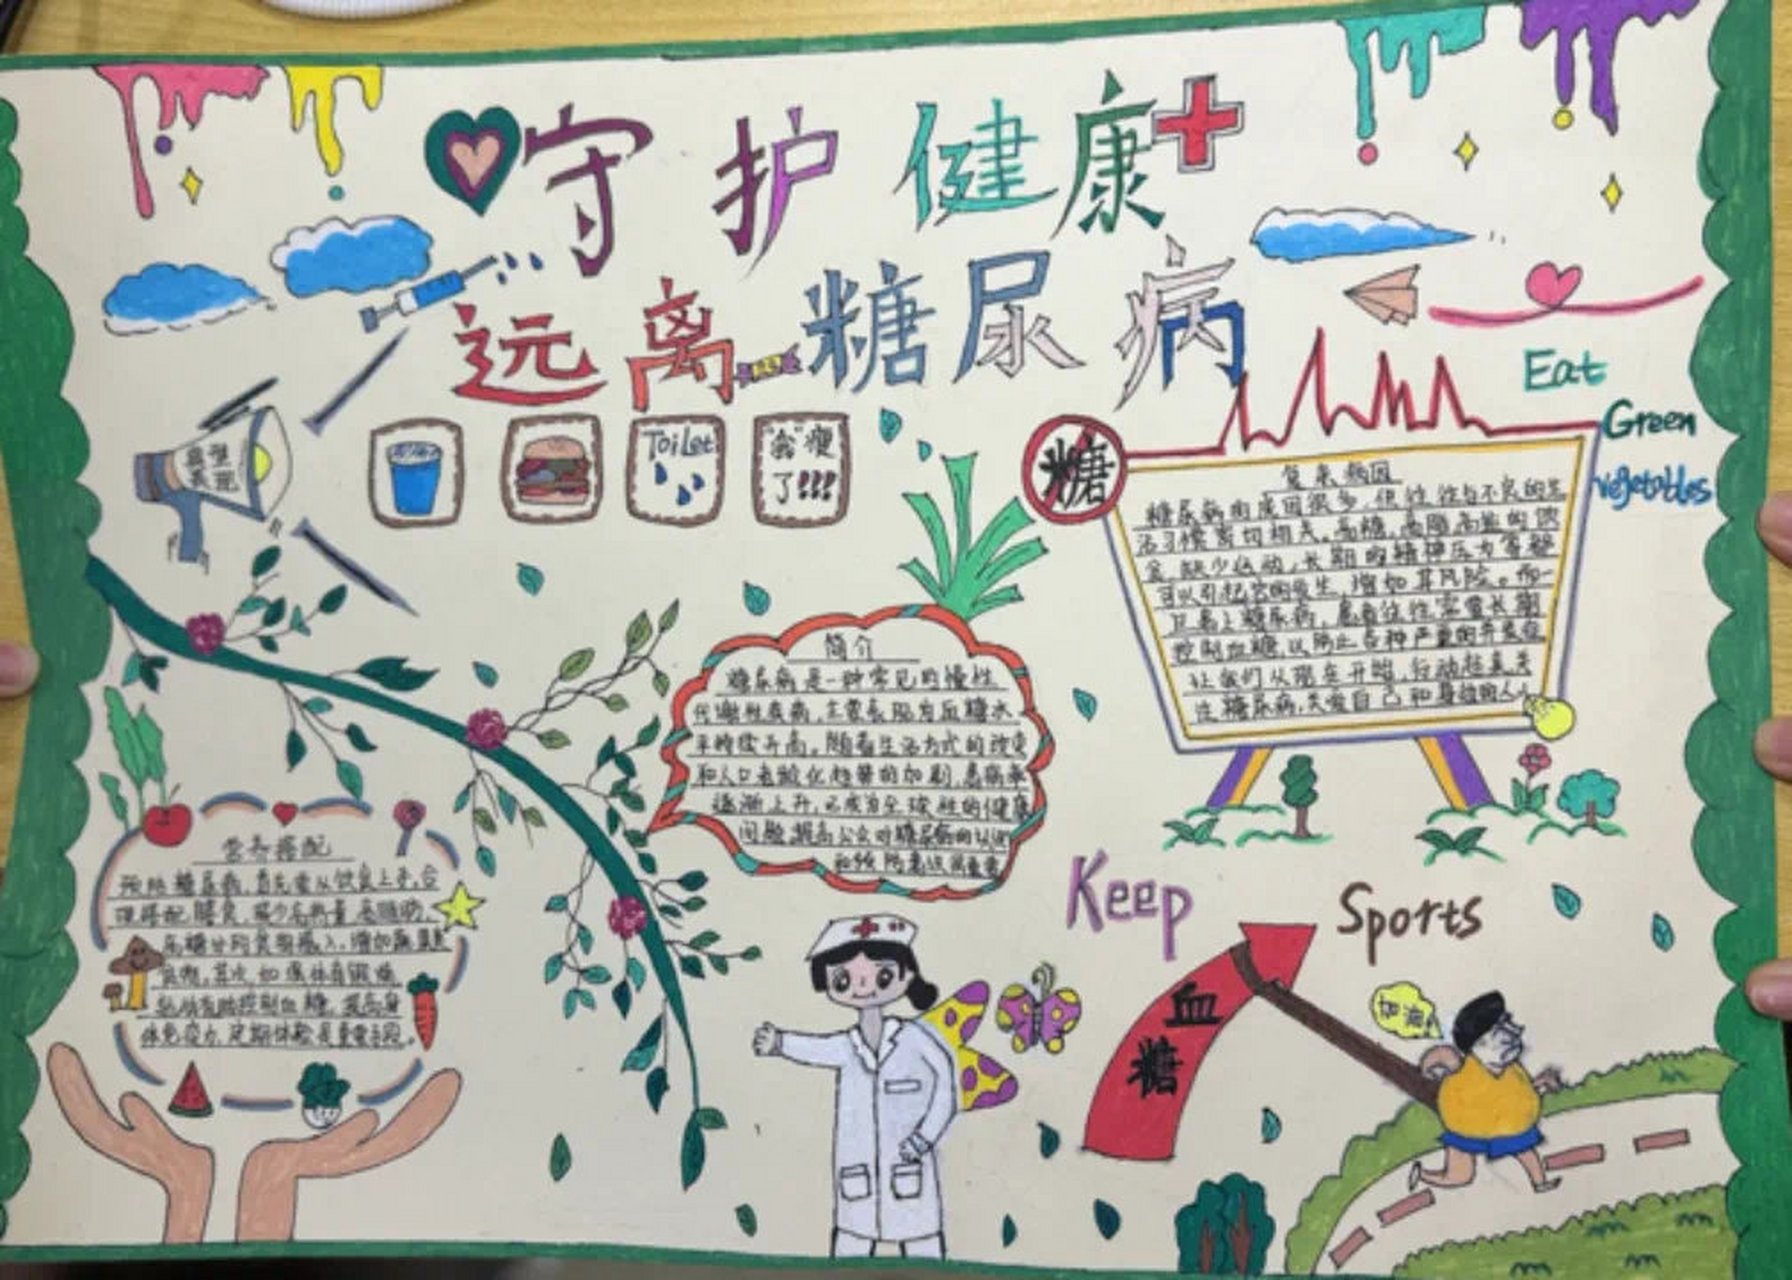 守护健康
远离糖尿病
Toilet
"我"瘦
了!!!
糖
Eat
Green
vegetables
复杂病因
糖尿病的成因很多,但往往与不良的生
活习惯密切相关。高糖,高脂高盐的饮
食,缺少运动,长期的精神压力等都
可以引起它的发生,增加其风险。而一
旦患上糖尿病,患者往往需要长期
控制血糖,以防止各种严重的并发症
让我们从现在开始,行动起来关
注糖尿病,关爱自己和身边的人
简介
糖尿病是一种常见的慢性
代谢性疾病,主要表现为血糖水
平持续升高。随着生活方式的改变
和人口老龄化趋势的加剧,患病率
逐渐上升,已成为全球性的健康
问题,提高公众对糖尿病的认识
和预防意识很重要
营养搭配
预防糖尿病,首先要从饮食上手,合
理搭配膳食,减少高热量 高脂肪、
高糖分的食物摄入,增加蔬菜
其次,加强体育锻炼
运动有助控制血糖,提高身
体免疫力,定期体检是重要手段。
Keep
Sports
血
糖